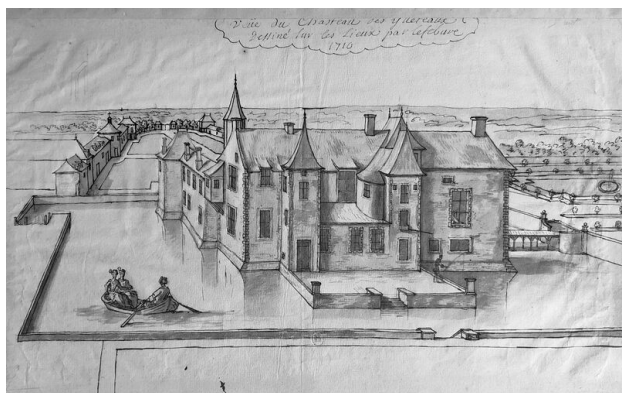 Vüe du Chasteau des yveteaux
Dessiné sur les Lieux par Lefebure
1719